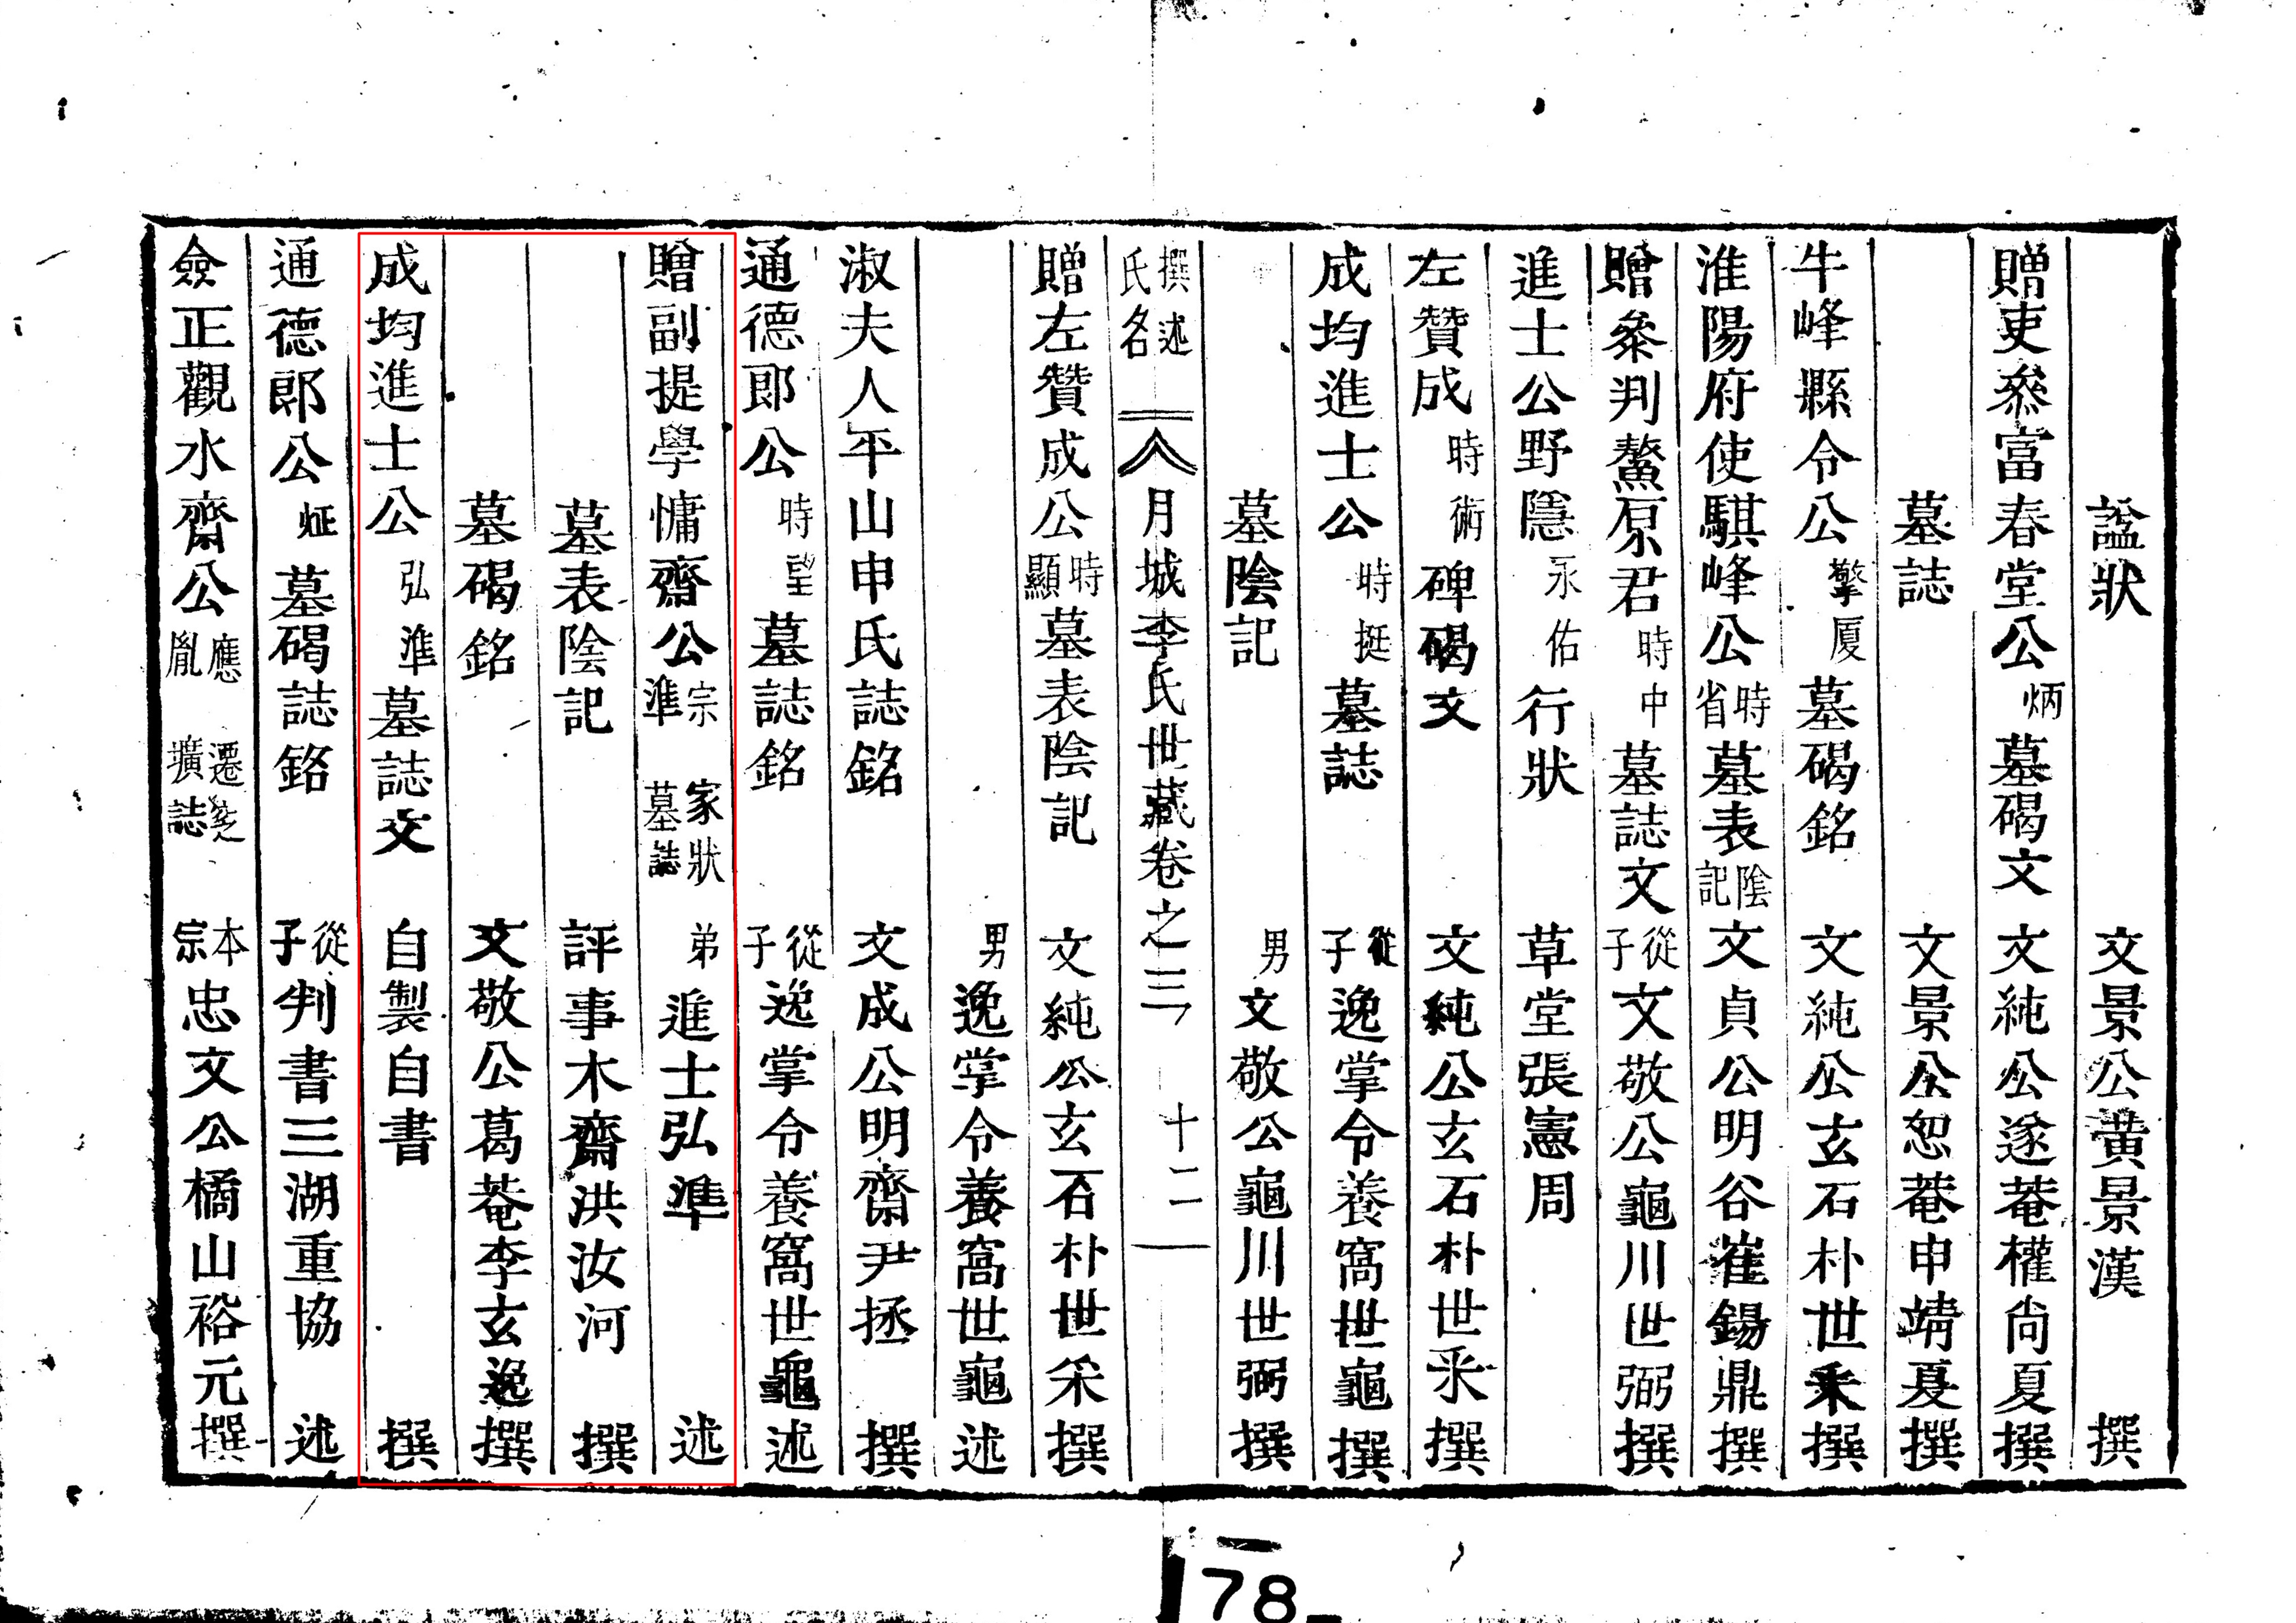 諡狀 文景公黃景漢 撰
贈吏叅富春堂公炳墓碣文 文純公遂菴權尙夏撰
墓誌 文景公恕菴申靖夏撰
牛峰縣令公擎厦墓碣銘 文純公玄石朴世采撰
淮陽府使騏峰公時省墓表陰記 文貞公明谷崔錫鼎撰
贈叅判鰲原君時中墓誌文 從子文敬公龜川世弼撰
進士公野隱永佑行狀 草堂張憲周
左贊成時術碑碣文 文純公玄石朴世采撰
成均進士公時挺墓誌 從子逸掌令養窩世龜撰
墓陰記 男文敬公龜川世弼撰
撰述氏名 月城李氏世藏卷之三 十二
贈左贊成公時顯墓表陰記 文純公玄石朴世采撰
男逸掌令養窩世龜述
淑夫人平山申氏誌銘 文成公明齋尹拯 撰
通德郎公時望墓誌銘 從子逸掌令養窩世龜述
贈副提學慵齋公宗準 家狀墓誌 弟進士弘準 述
墓表陰記 評事木齋洪汝河 撰
墓碣銘 文敬公葛菴李玄逸撰
成均進士公弘準墓誌文 自製自書 撰
通德郎公炡墓碣誌銘 從子判書三湖重協 述
僉正觀水齋公應胤 遷窆壙誌 本宗忠文公橘山裕元撰
178